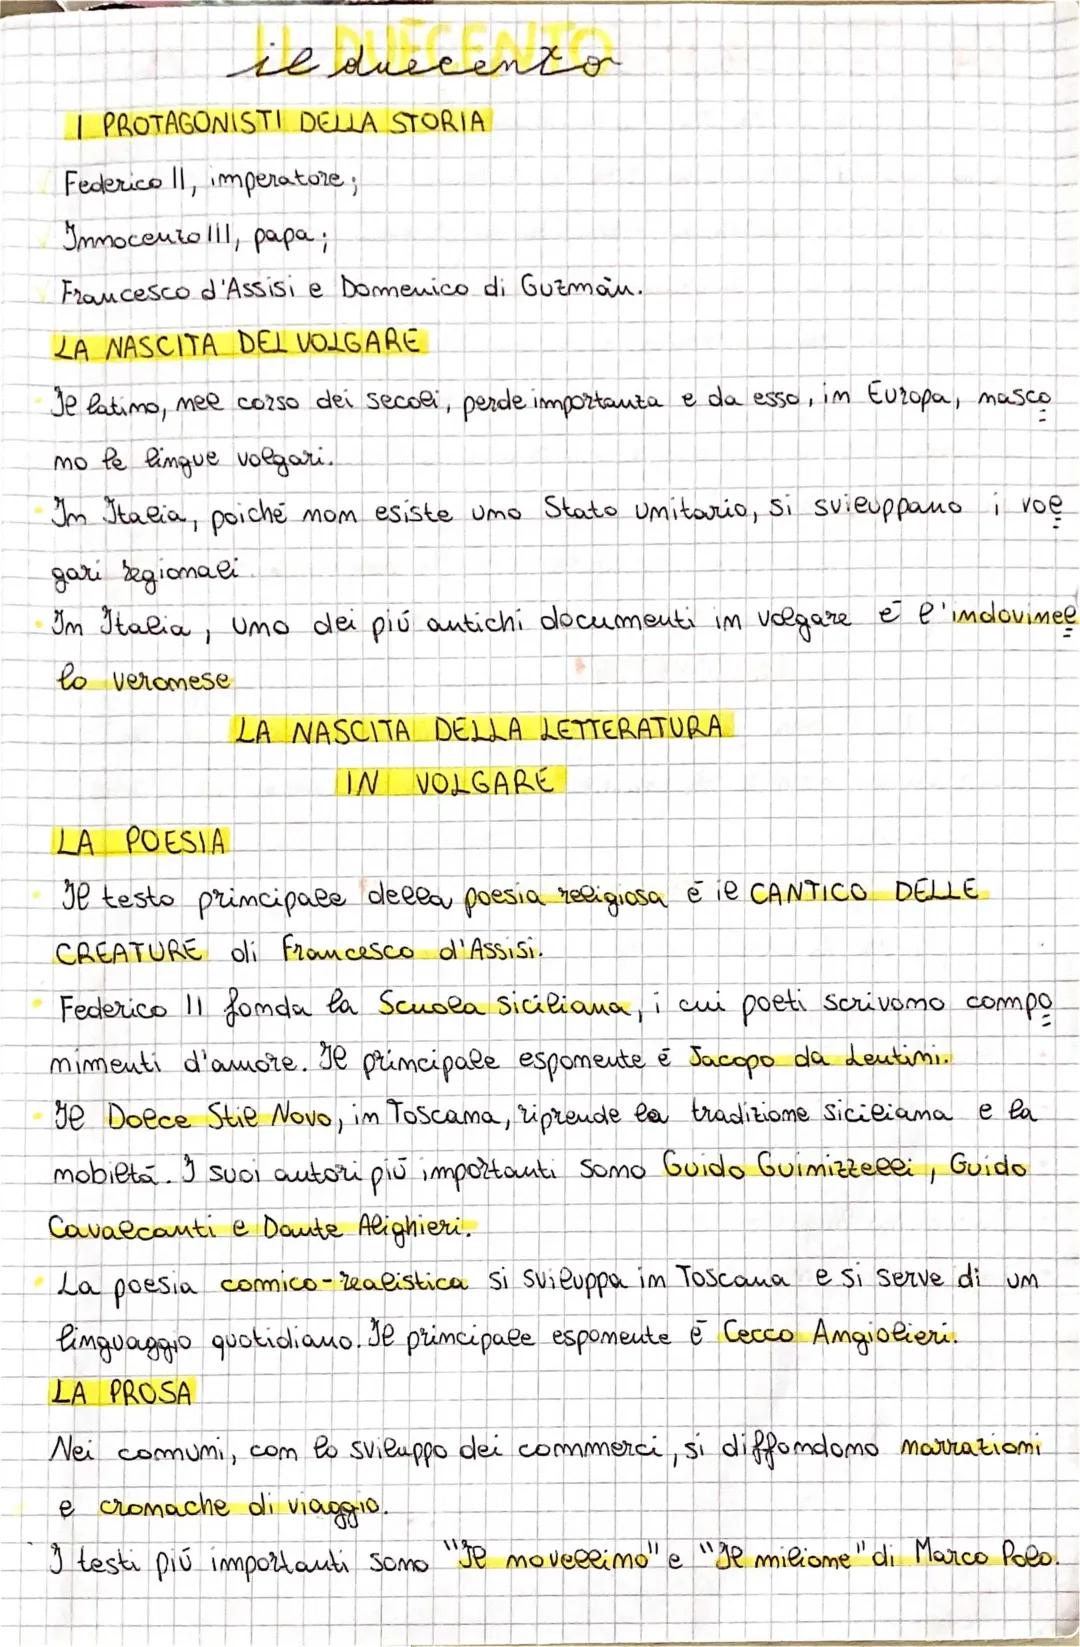 IL DUECENTO
il duecento
I PROTAGONISTI DELLA STORIA
Federico II, imperatore;
Innocenzo III, papa;
Francesco d'Assisi e Domenico di Guzmàn.
LA NASCITA DEL VOLGARE
Il latino, nel corso dei secoli, perde importanza e da esso, in Europa, nasco
no le lingue volgari.
In Italia, poiché non esiste uno Stato unitario, si sviluppano i vol
gari regionali
In Italia, uno dei più antichi documenti in volgare è l'indovinel
lo veronese
LA NASCITA DELLA LETTERATURA
IN VOLGARE
LA POESIA
Il testo principale della poesia religiosa è il CANTICO DELLE
CREATURE di Francesco d'Assisi.
Federico II fonda la Scuola Siciliana, i cui poeti scrivono compo
nimenti d'amore. Il principale esponente è Jacopo da Lentini.
Il Dolce Stil Novo, in Toscana, riprende la tradizione siciliana e la
nobiltà. I suoi autori più importanti sono Guido Guinizzelli, Guido
Cavalcanti e Dante Alighieri.
La poesia comico-realistica si sviluppa in Toscana e si serve di un
linguaggio quotidiano. Il principale esponente è Cecco Angiolieri.
LA PROSA
Nei comuni, con lo sviluppo dei commerci, si diffondono narrazioni
e cronache di viaggio.
I testi più importanti sono "Il novellino" e "Il milione" di Marco Polo.